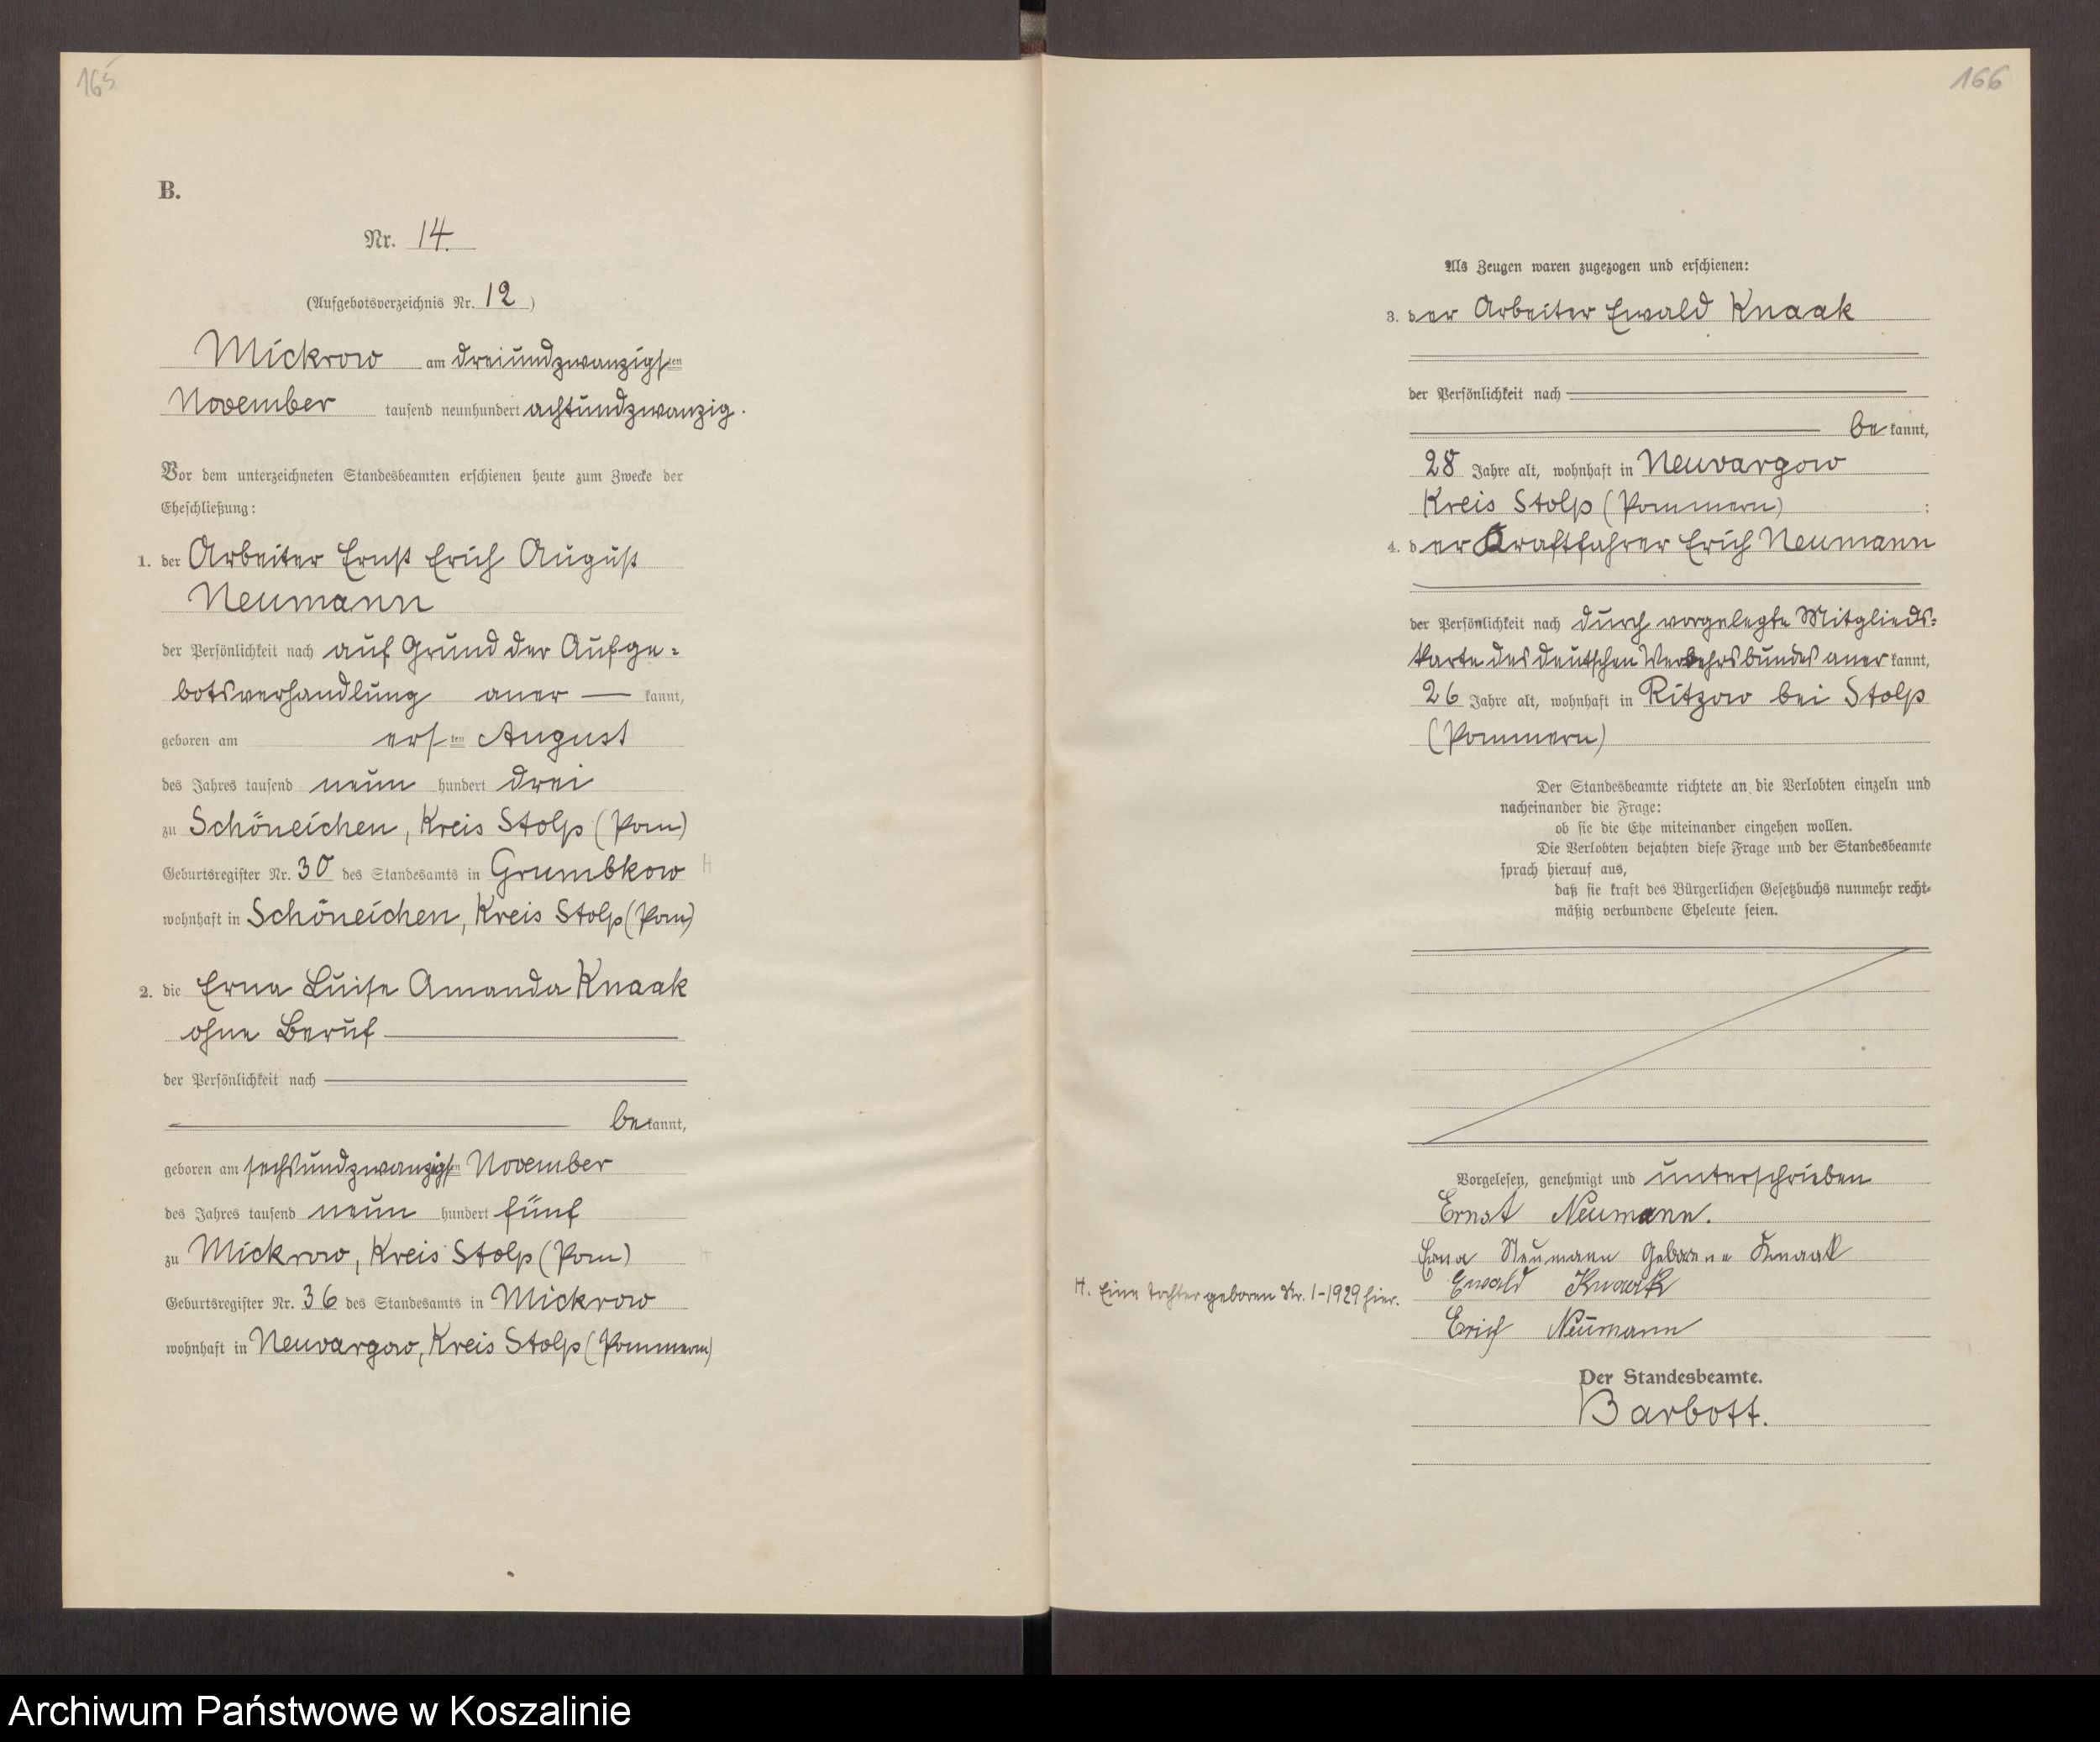 165
B.
Nr. 14.
(Aufgebotsverzeichnis Nr. 12)
Mickrow am dreiundzwanzigsten
November tausend neunhundert achtundzwanzig.
Vor dem unterzeichneten Standesbeamten erschienen heute zum Zwecke der
Eheschließung:
1. der Arbeiter Ernst Erich August
Neumann
der Persönlichkeit nach auf Grund der Aufge=
botsverhandlung aner — kannt,
geboren am ersten August
des Jahres tausend neun hundert drei
zu Schöneichen, Kreis Stolp (Pom)
Geburtsregister Nr. 30 des Standesamts in Grumbkow H
wohnhaft in Schöneichen, Kreis Stolp (Pom)
2. die Erna Luise Amanda Knaak
ohne Beruf
der Persönlichkeit nach
bekannt,
geboren am sechsundzwanzigsten November
des Jahres tausend neun hundert fünf
zu Mickrow, Kreis Stolp (Pom) H
Geburtsregister Nr. 36 des Standesamts in Mickrow
wohnhaft in Neuvargow, Kreis Stolp (Pommern)
166
Als Zeugen waren zugezogen und erschienen:
3. der Arbeiter Ewald Knaak
der Persönlichkeit nach
bekannt,
28 Jahre alt, wohnhaft in Neuvargow
Kreis Stolp (Pommern) ;
4. der Kraftfahrer Erich Neumann
der Persönlichkeit nach durch vorgelegte Mitglieds=
karte des deutschen Verkehrsbundes aner kannt,
26 Jahre alt, wohnhaft in Ritzow bei Stolp
(Pommern)
Der Standesbeamte richtete an die Verlobten einzeln und
nacheinander die Frage:
ob sie die Ehe miteinander eingehen wollen.
Die Verlobten bejahten diese Frage und der Standesbeamte
sprach hierauf aus,
daß sie kraft des Bürgerlichen Gesetzbuchs nunmehr recht=
mäßig verbundene Eheleute seien.
Vorgelesen, genehmigt und unterschrieben
Ernst Neumann.
Erna Neumann Geborene Knaak
Ewald Knaak
H. Eine Tochter geboren Nr. 1-1929 hier.
Erich Neumann
Der Standesbeamte.
Barbott.
Archiwum Państwowe w Koszalinie